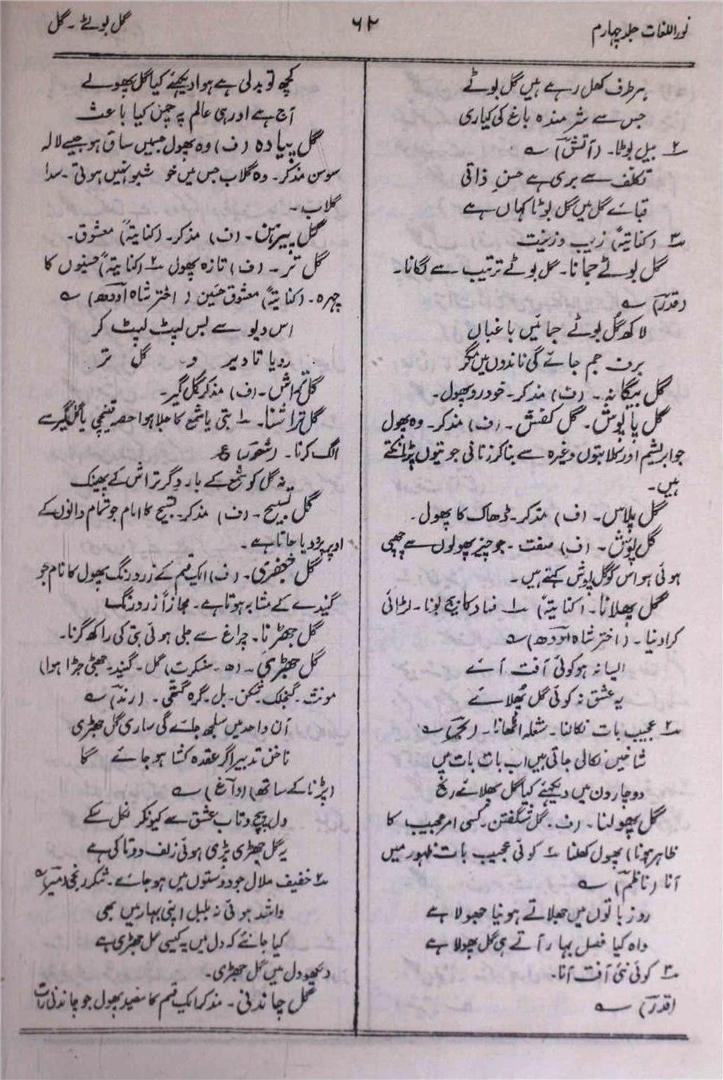 نور اللغات جلد چہارم
۶۲
گل بوٹے ۔ گل
ہر طرف کھل رہے ہیں گل بوٹے
جس سے شرمندہ باغ کی کیاری
۲ بیل بوٹا۔ (آتش) ؎
تکلف سے بری ہے حسن ذاتی
قبائے گل میں گل بوٹا کہاں ہے
۳ (کنایتہً) زیب و زینت
گل بوٹے جمانا۔ گل بوٹے ترتیب سے لگانا۔
(قدر) ؎
لاکھ گل بوٹے جمائیں باغباں
برف جم جائے گی ناندوں میں مگر
گل بیگانہ۔ (ف) مذکر۔ خود رو پھول۔
گل پاپوش۔ گل کفش۔ (ف) مذکر۔ وہ پھول
جو ابریشم اور کلابتوں وغیرہ سے بنا کر زنانی جوتیوں پر ٹانکتے
ہیں۔
گل پلاس۔ (ف) مذکر۔ ڈھاک کا پھول۔
گل پوش۔ (ف) صفت۔ جو چیز پھولوں سے چھپی
ہوئی ہو اس کو گل پوش کہتے ہیں۔
گل پھلانا۔ (کنایتہً) ۱ فساد کا بیج بونا۔ لڑائی
کرا دینا۔ (اختر شاہ اودھ) ؎
ایسا نہ ہو کوئی آفت آئے
یہ عشق نہ کوئی گل پھلائے
۲ عجیب بات نکالنا۔ شغلہ اٹھانا۔ ؎
شاخیں نکالی جاتی ہیں اب بات بات میں
دو چار دن میں دیکھئے کیا گل پھلائے رنج
گل پھولنا۔ (ف۔ گل شگفتن۔ کسی امر عجیب کا
ظاہر ہونا) پھول کھلنا ۲ کوئی عجیب بات ظہور میں
آنا (ناظم) ؎
روز باتوں میں جھلاتے ہو نیا جھولا ہے
واہ کیا فصل بہار آتے ہی گل پھولا ہے
۳ کوئی نئی آفت آنا۔
(قدر) ؎
کچھ تو بدلی ہے ہوا دیکھئے کیا گل پھولے
آج ہے اور ہی عالم پہ چمن کیا باعث
گل پیادہ (ف) وہ پھول جسمیں ساق ہو جیسے لالہ
سوسن مذکر۔ وہ گلاب جس میں خوشبو نہیں ہوتی۔ سدا
گلاب۔
گل پیرہن۔ (ف) مذکر۔ (کنایتہً) معشوق۔
گل تر۔ (ف) تازہ پھول ۲ (کنایتہً) حسینوں کا
چہرہ۔ (کنایتہً) معشوق حسین (اختر شاہ اودھ) ؎
اس دیو سے بس لپٹ لپٹ کر
رویا تا دیر وہ گل تر
گل تراش۔ (ف) مذکر گل گیر۔
گل تراشنا۔ ۱ بتی یا شمع کا جلا ہوا حصہ قینچی یا گل گیر سے
الگ کرنا۔ (شعور) ع
نہ گل کو شمع کے بار دگر تراش کے پھینک
گل تسبیح۔ (ف) مذکر۔ تسبیح کا امام جو تمام دانوں کے
اوپر پرو دیا جاتا ہے۔
گل جعفری۔ (ف) ایک قسم کے زرد رنگ پھول کا نام جو
گیندے کے مشابہ ہوتا ہے۔ مجازاً زرد رنگ
گل جھڑنا۔ چراغ سے جلی ہوئی بتی کی راکھ گرنا۔
گل جھڑی۔ (ھ۔ سنسکرت) گل۔ گیند۔ جھٹی جڑا ہوا)
مونث۔ گنجلک شکن۔ بل۔ گرہ گتھی۔ (رند) ؎
آن واحد میں سلجھ جائے گی ساری گل جھڑی
ناخن تدبیر اگر عقدہ کشا ہو جائے گا
(پڑنا کے ساتھ) (آغا) ؎
دل پیچ و تاب عشق سے کیونکر نکل سکے
یہ گل جھڑی پڑی ہوئی زلف دوتا کی ہے
۲ خفیف ملال جو دوستوں میں ہو جائے۔ شکر رنجی (میر) ؎
واشد ہوئی نہ بلبل اپنی بہار میں بھی
کیا جانئے کہ دل میں یہ کیسی گل جھڑی ہے
دیکھو دل میں گل جھڑی۔
گل چاندنی۔ مذکر ایک قسم کا سفید پھول جو چاندنی رات